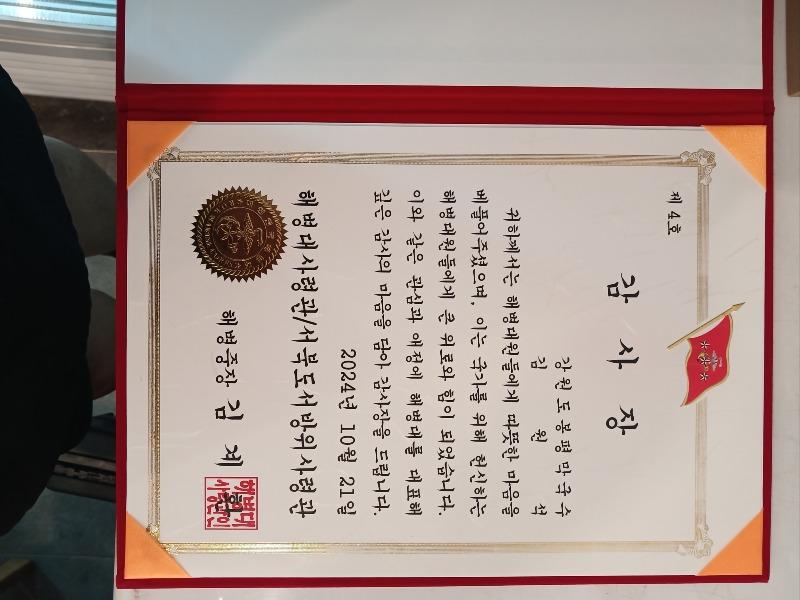 제 4호
감 사 장
강원도봉평막국수
김 원 석
귀하께서는 해병대원들에게 따뜻한 마음을
베풀어주셨으며, 이는 국가를 위해 헌신하는
해병대원들에게 큰 위로와 힘이 되었습니다.
이와 같은 관심과 애정에 해병대를 대표해
깊은 감사의 마음을 담아 감사장을 드립니다.
2024년 10월 21일
해병대사령관/서북도서방위사령관
해병중장 김 계 환